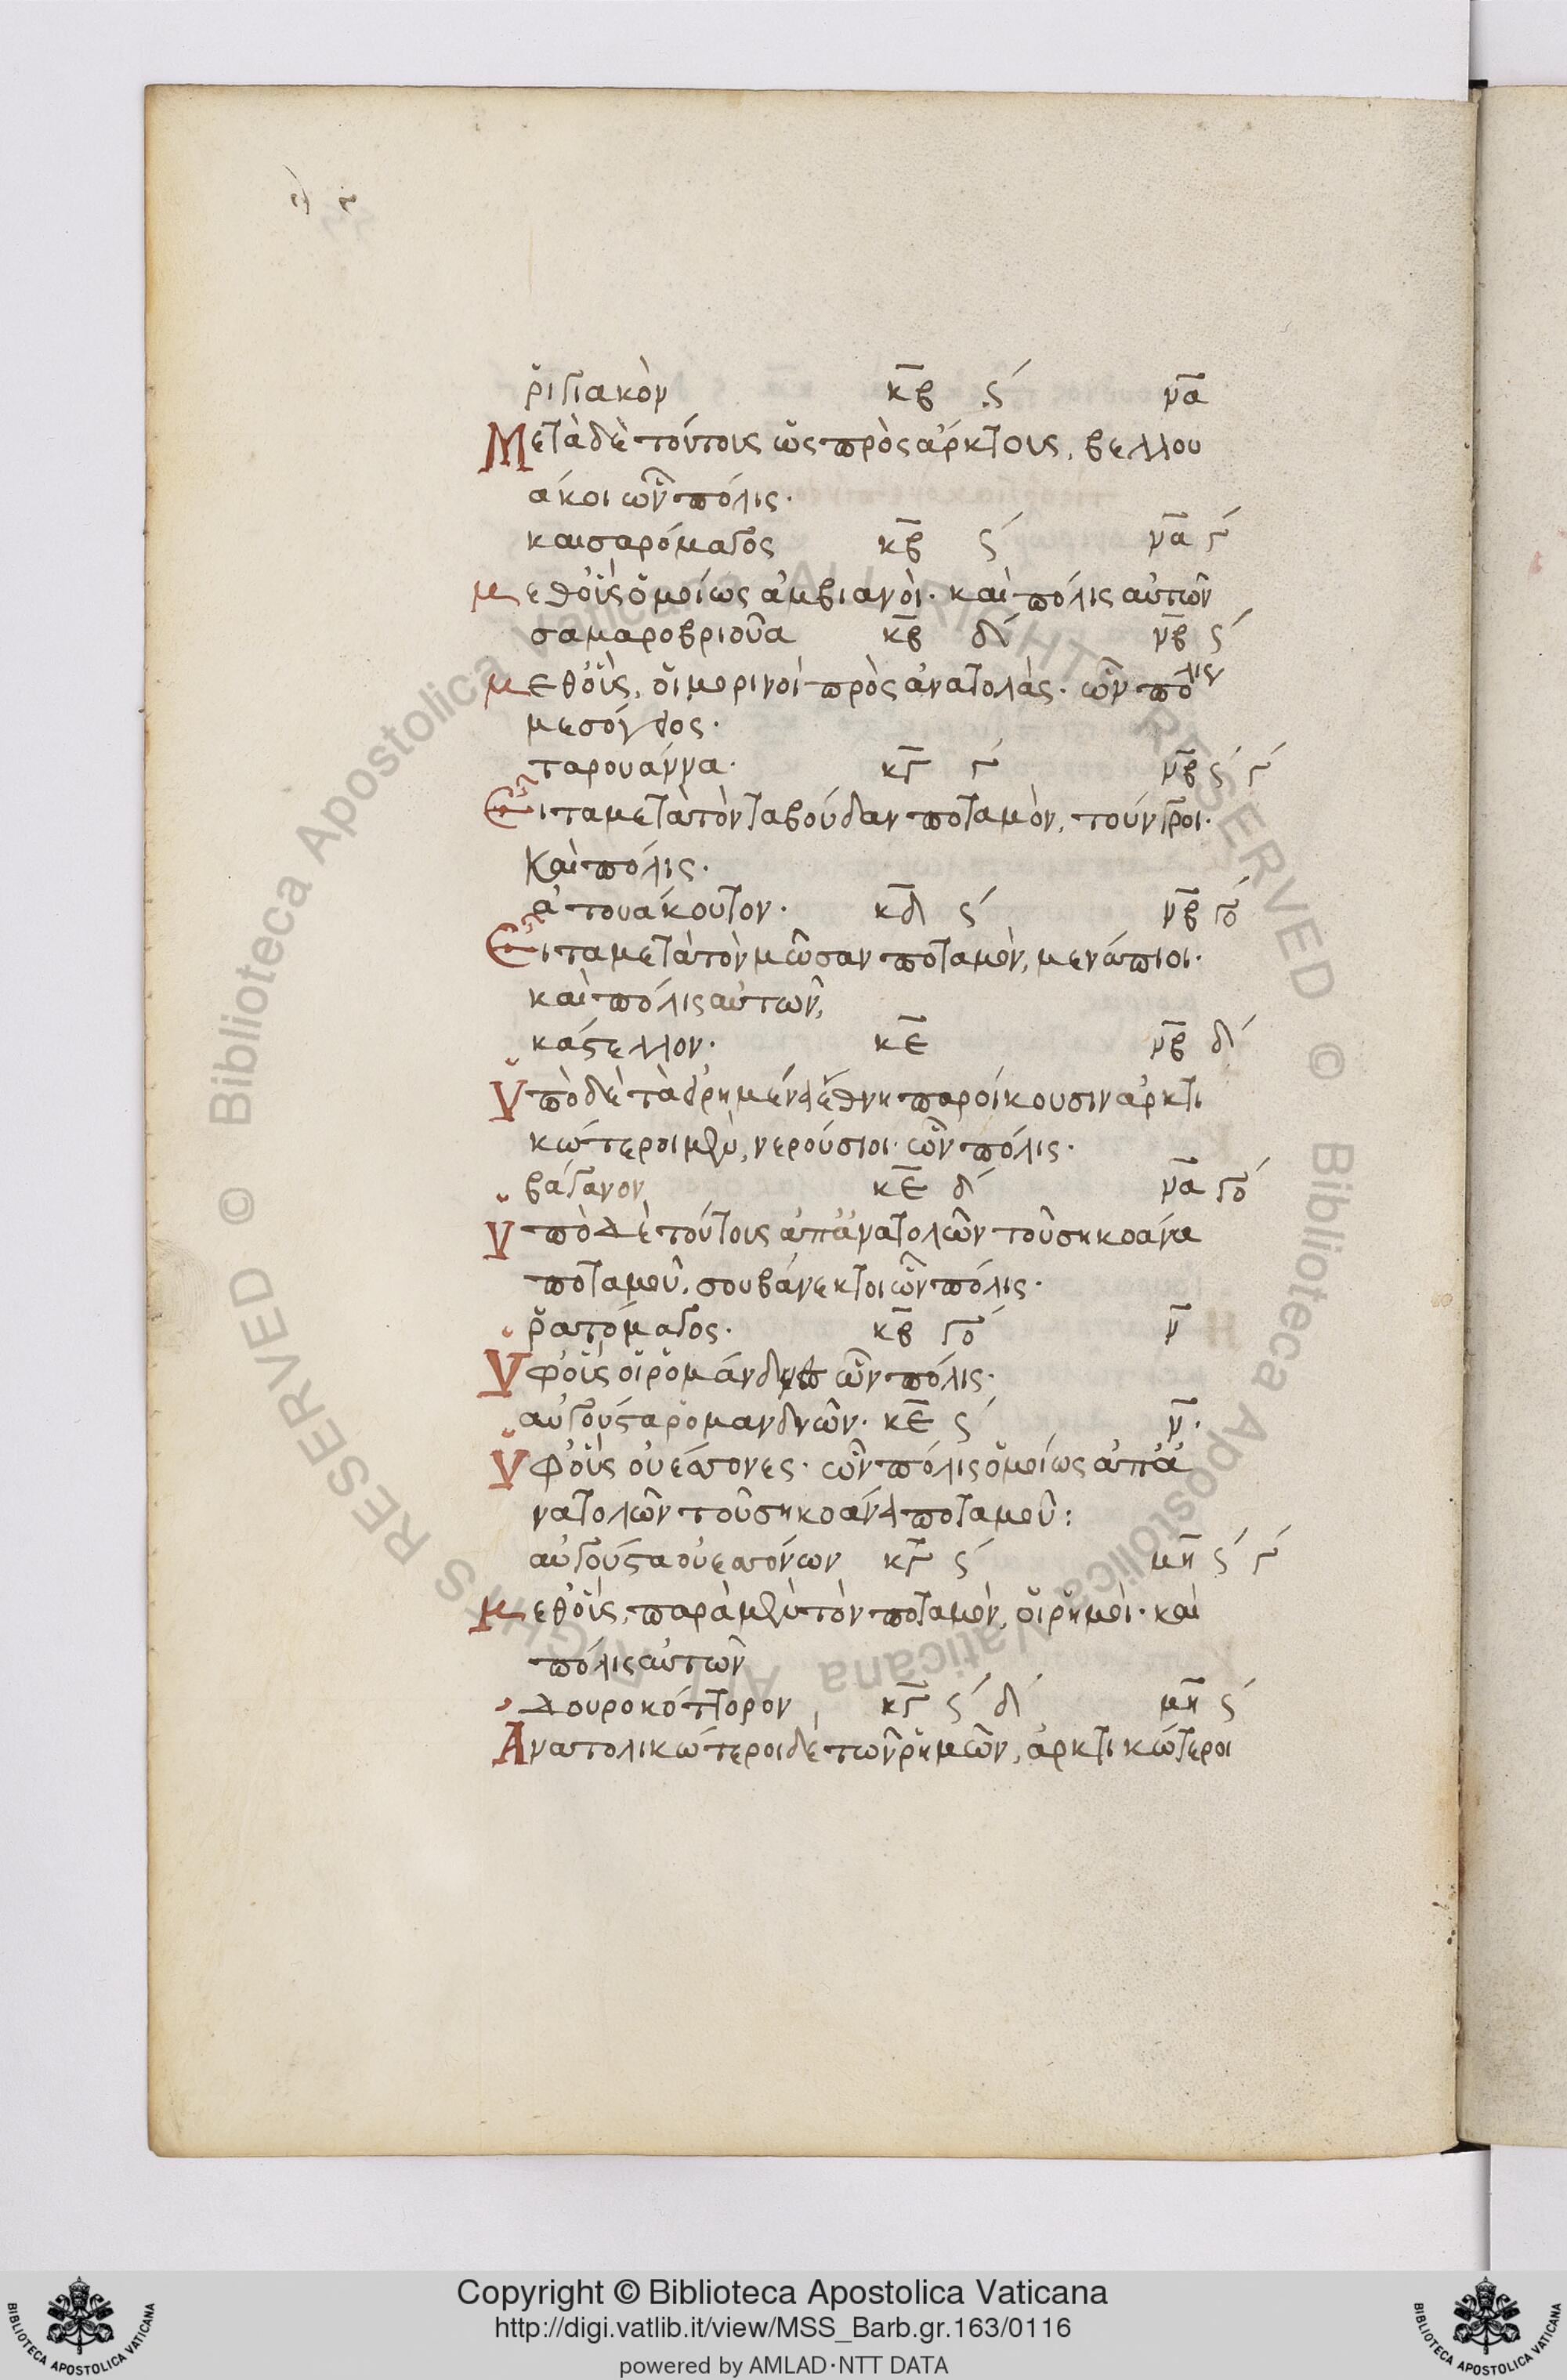 ῥιγιακὸν κβ ϛ´ να
Μετὰ δὲ τούτους ὡς πρὸς ἄρκτους, βελλου
άκοι ὧν πόλις·
καισαρόμαγος κβ ϛ´ να γ´
μεθ οὓς ὁμοίως ἀμβιανοὶ· καὶ πόλις αὐτῶν
σαμαροβριοῦα κβ δ´ νβ ϛ´
μεθ οὓς, οἱ μορινοὶ πρὸς ἀνατολὰς· ὧν πόλις
μεσόγειος·
ταρουάννα· κγ γ´ νβ ϛ´ γ´
Εἶτα μετὰ τὸν ταβούδαν ποταμὸν, τούνγροι·
καὶ πόλις·
ἀτουάκουτον· κδ ϛ´ νβ γο´
Εἶτα μετὰ τὸν μῶσαν ποταμὸν, μενάπιοι·
καὶ πόλις αὐτῶν,
κάστελλον· κε νβ δ´
Ὑπὸ δὲ τὰ εἰρημένα ἔθνη παροίκουσιν ἀρκτι
κώτεροι μὲν, νερούσιοι· ὧν πόλις·
βάγανον κε δ´ να γο´
Ὑπὸ δὲ τούτους ἀπ ἀνατολῶν τοῦ σηκοάνα
ποταμοῦ, σουβάνεκτοι ὧν πόλις·
ῥατόμαγος· κβ γο´ ν
Ὑφ οὓς οἱ ῥομάνδυες ὧν πόλις·
αὐγούστα ῥομανδυῶν· κε ϛ´ ν·
Ὑφ οὓς οὐέσσονες· ὧν πόλις ὁμοίως ἀπ ἀ
νατολῶν τοῦ σηκοάνα ποταμοῦ:
αὐγούστα οὐεσσόνων κγ ϛ´ μη ϛ´ γ´
μεθ οὓς, παρὰ μὲν τὸν ποταμὸν, οἱ ῥημοὶ· καὶ
πόλις αὐτῶν
Δουροκόττορον, κγ ϛ´ δ´ μη ϛ´
Ἀνατολικώτεροι δὲ τῶν ῥημῶν, ἀρκτικώτεροι
Copyright © Biblioteca Apostolica Vaticana
http://digi.vatlib.it/view/MSS_Barb.gr.163/0116
powered by AMLAD·NTT DATA
BIBLIOTECA APOSTOLICA VATICANA
BIBLIOTECA APOSTOLICA VATICANA
© Biblioteca Apostolica Vaticana ALL RIGHTS RESERVED
© Biblioteca Apostolica Vaticana ALL RIGHTS RESERVED